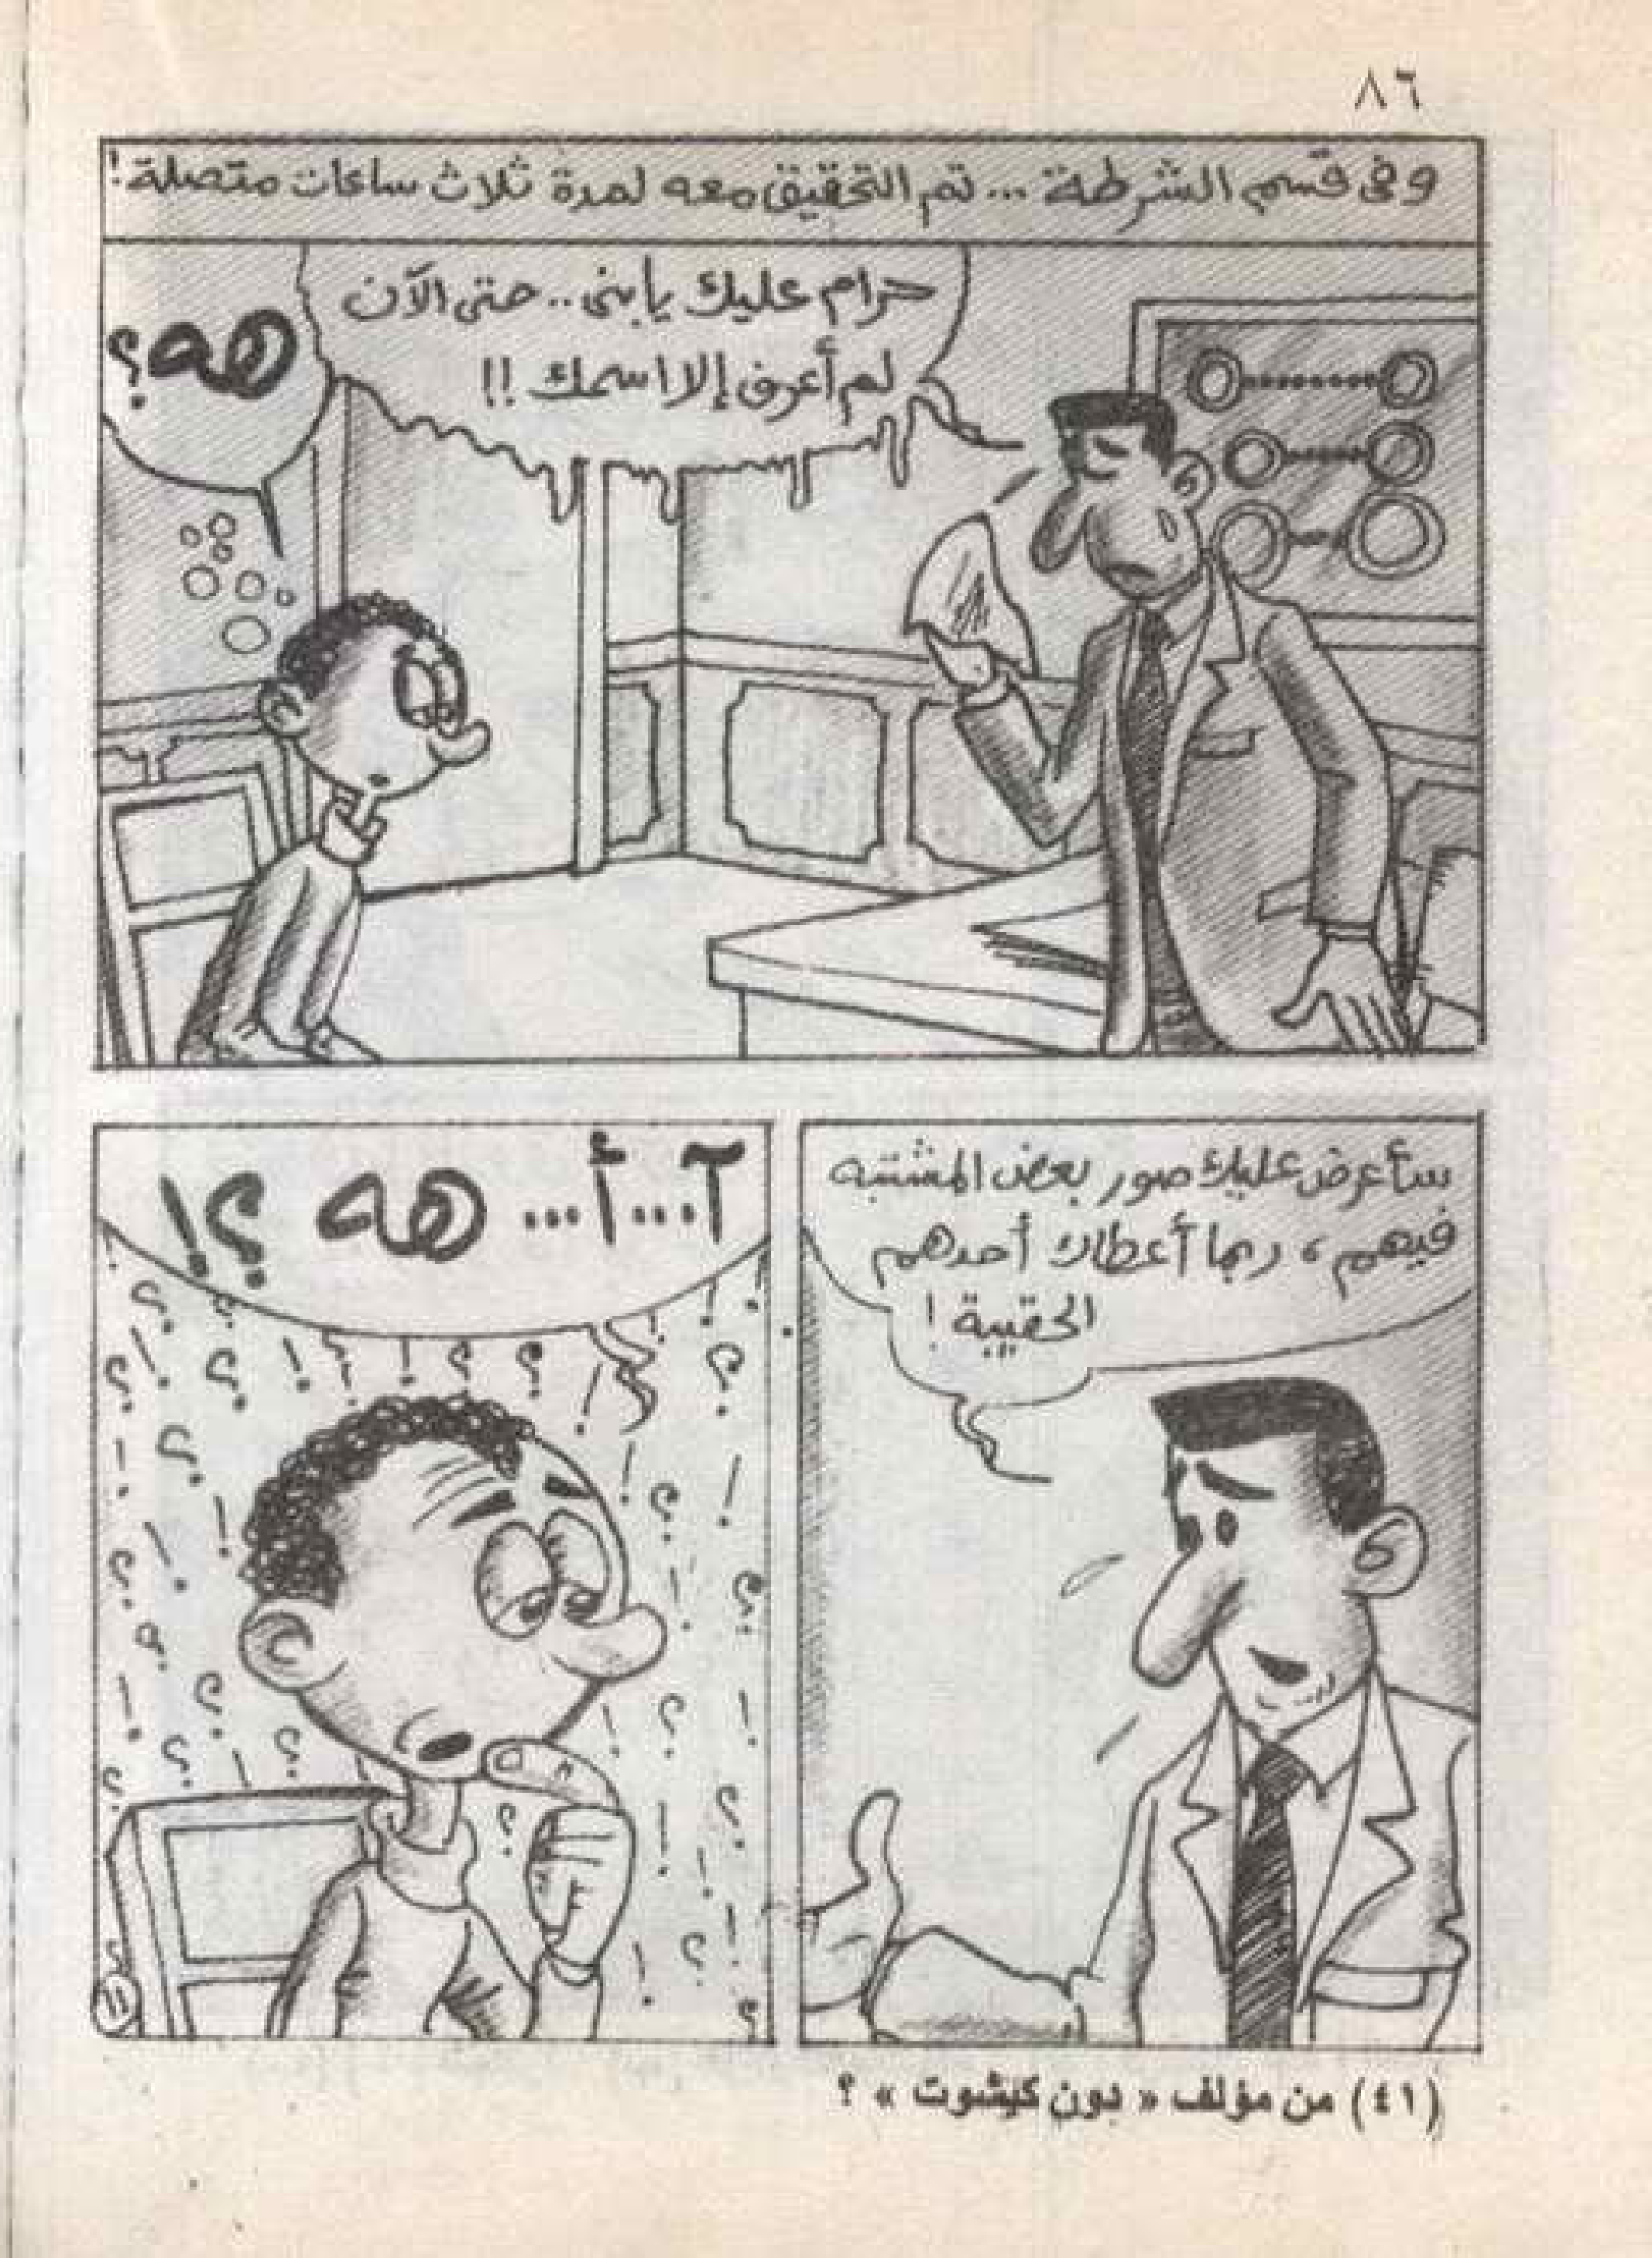 ٨٦
وفى قسم الشرطة ... تم التحقيق معه لمدة ثلاث ساعات متصلة!
حرام عليك يابنى .. حتى الآن
لم أعرف إلا اسمك !!
هه؟
سأعرض عليك صور بعض المشتبه
فيهم ، ربما أعطاك أحدهم
الحقيبة !
آ...أ... هه ؟!
(٤١) من مؤلف « دون كيشوت » ؟